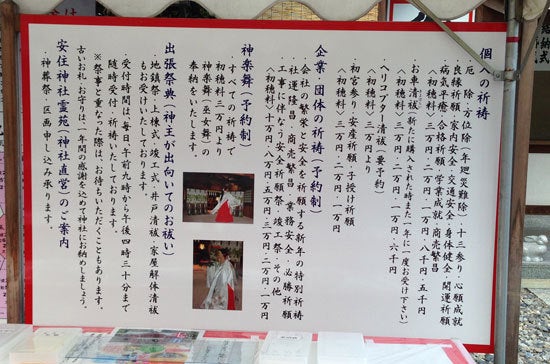 個人の祈祷
・厄除・方位除・年廻災難除・十三参り・心願成就
良縁祈願・家内安全・交通安全・身体健全・開運祈願
病気平癒・合格祈願・学業成就・商売繁昌
〈初穂料〉三万円・二万円・一万円・八千円・五千円
・お車清祓(新たに購入された時また一年に一度お受け下さい)
〈初穂料〉三万円・二万円・一万円・六千円
・ヘリコプター清祓(要予約)
〈初穂料〉三万円より
・初宮参り・安産祈願・子授け祈願
〈初穂料〉三万円・二万円・一万円
企業・団体の祈祷(予約制)
・会社の繁栄と安全を祈願する新年の特別祈祷
・社運隆昌・商売繁昌・業務安全・必勝祈願
・工事に伴なう安全祈願祭・竣工祭・その他
〈初穂料〉十万円・八万円・五万円・三万円・二万円・一万円
神楽舞(予約制)
・すべての祈祷で
初穂料三万円より
神楽舞(巫女舞)の
奉納をいたします。
出張祭典(神主が出向いてのお祓い)
・地鎮祭・上棟式・竣工式・井戸清祓・家屋解体清祓
もお受けいたしております。
受付時間は、毎日午前九時から午後四時三十分まで
随時受付・祈祷いたしております。
※祭事と重なった際は、お待ちいただくこともあります。
・古いお札、お守りは、一年間の感謝を込めて神社にお納めしましょう。
安住神社霊苑(神社直営)のご案内
・神葬祭・区画申し込み承ります。